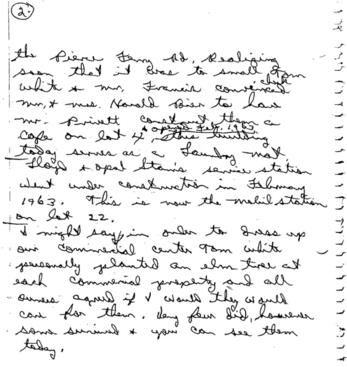 2.
the Pierre Ferry Rd. Realizing
soon that it was to small Tom
White & Mr. Francis convinced
Mr. & Mrs. Harold Bier to have
Mr. Privett construct them a
cafe on lot 4, & opened Feb. 1963 this building
today serves as a Laundry mat
Floyd & Opal Stains service station
went under construction in February
1963. This is now the mobil station
on lot 22.
I might say, in order to dress up
our commercial center Tom White
personally planted an elm tree at
each commercial property and all
owners agreed if I would they would
care for them. Very few did, however
some survived & you can see them
today.